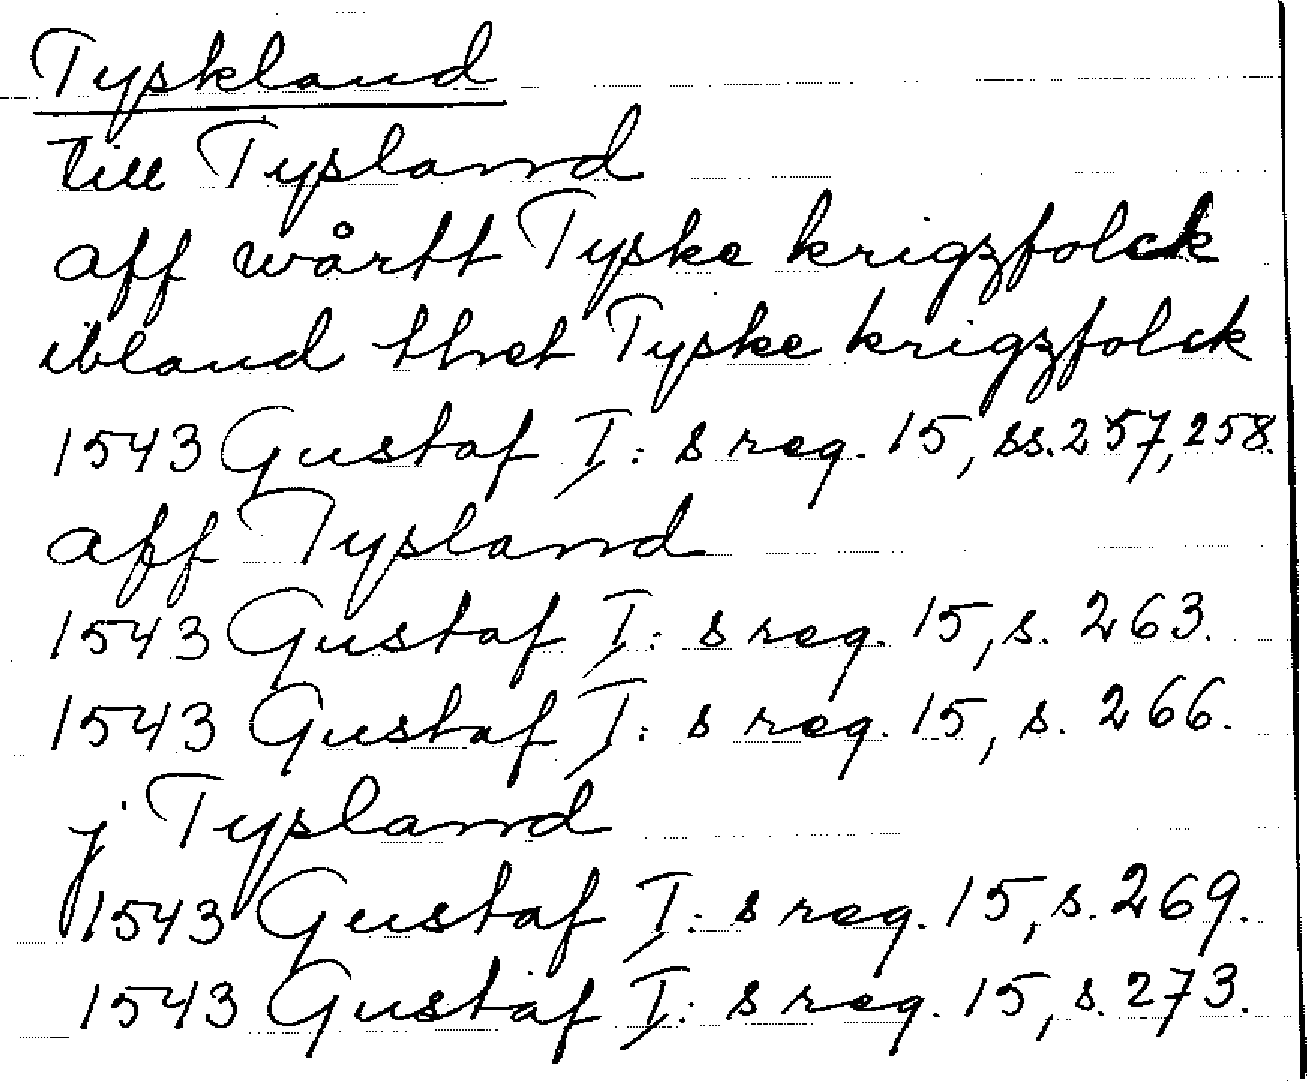 Tyskland
till Tyslannd
aff wårtt Tyske krigzfolck
ibland thet Tyske krigzfolck
1543 Gustaf I: s reg. 15, ss. 257, 258.
aff Tyslannd
1543 Gustaf I: s reg. 15, s. 263.
1543 Gustaf I: s reg. 15, s. 266.
j Tyslannd
1543 Gustaf I: s reg. 15, s. 269.
1543 Gustaf I: s reg. 15, s. 273.